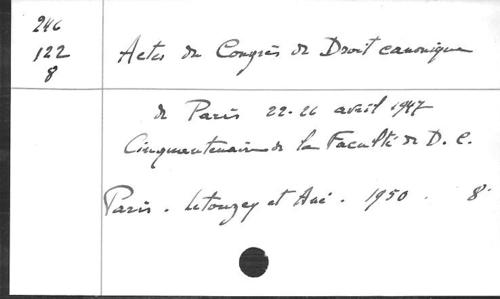 246
122
8
Actes du Congrès de Droit canonique
de Paris 22-26 avril 1947
Cinquantenaire de la Faculté de D. C.
Paris. Letouzey et Ané. 1950. 8°